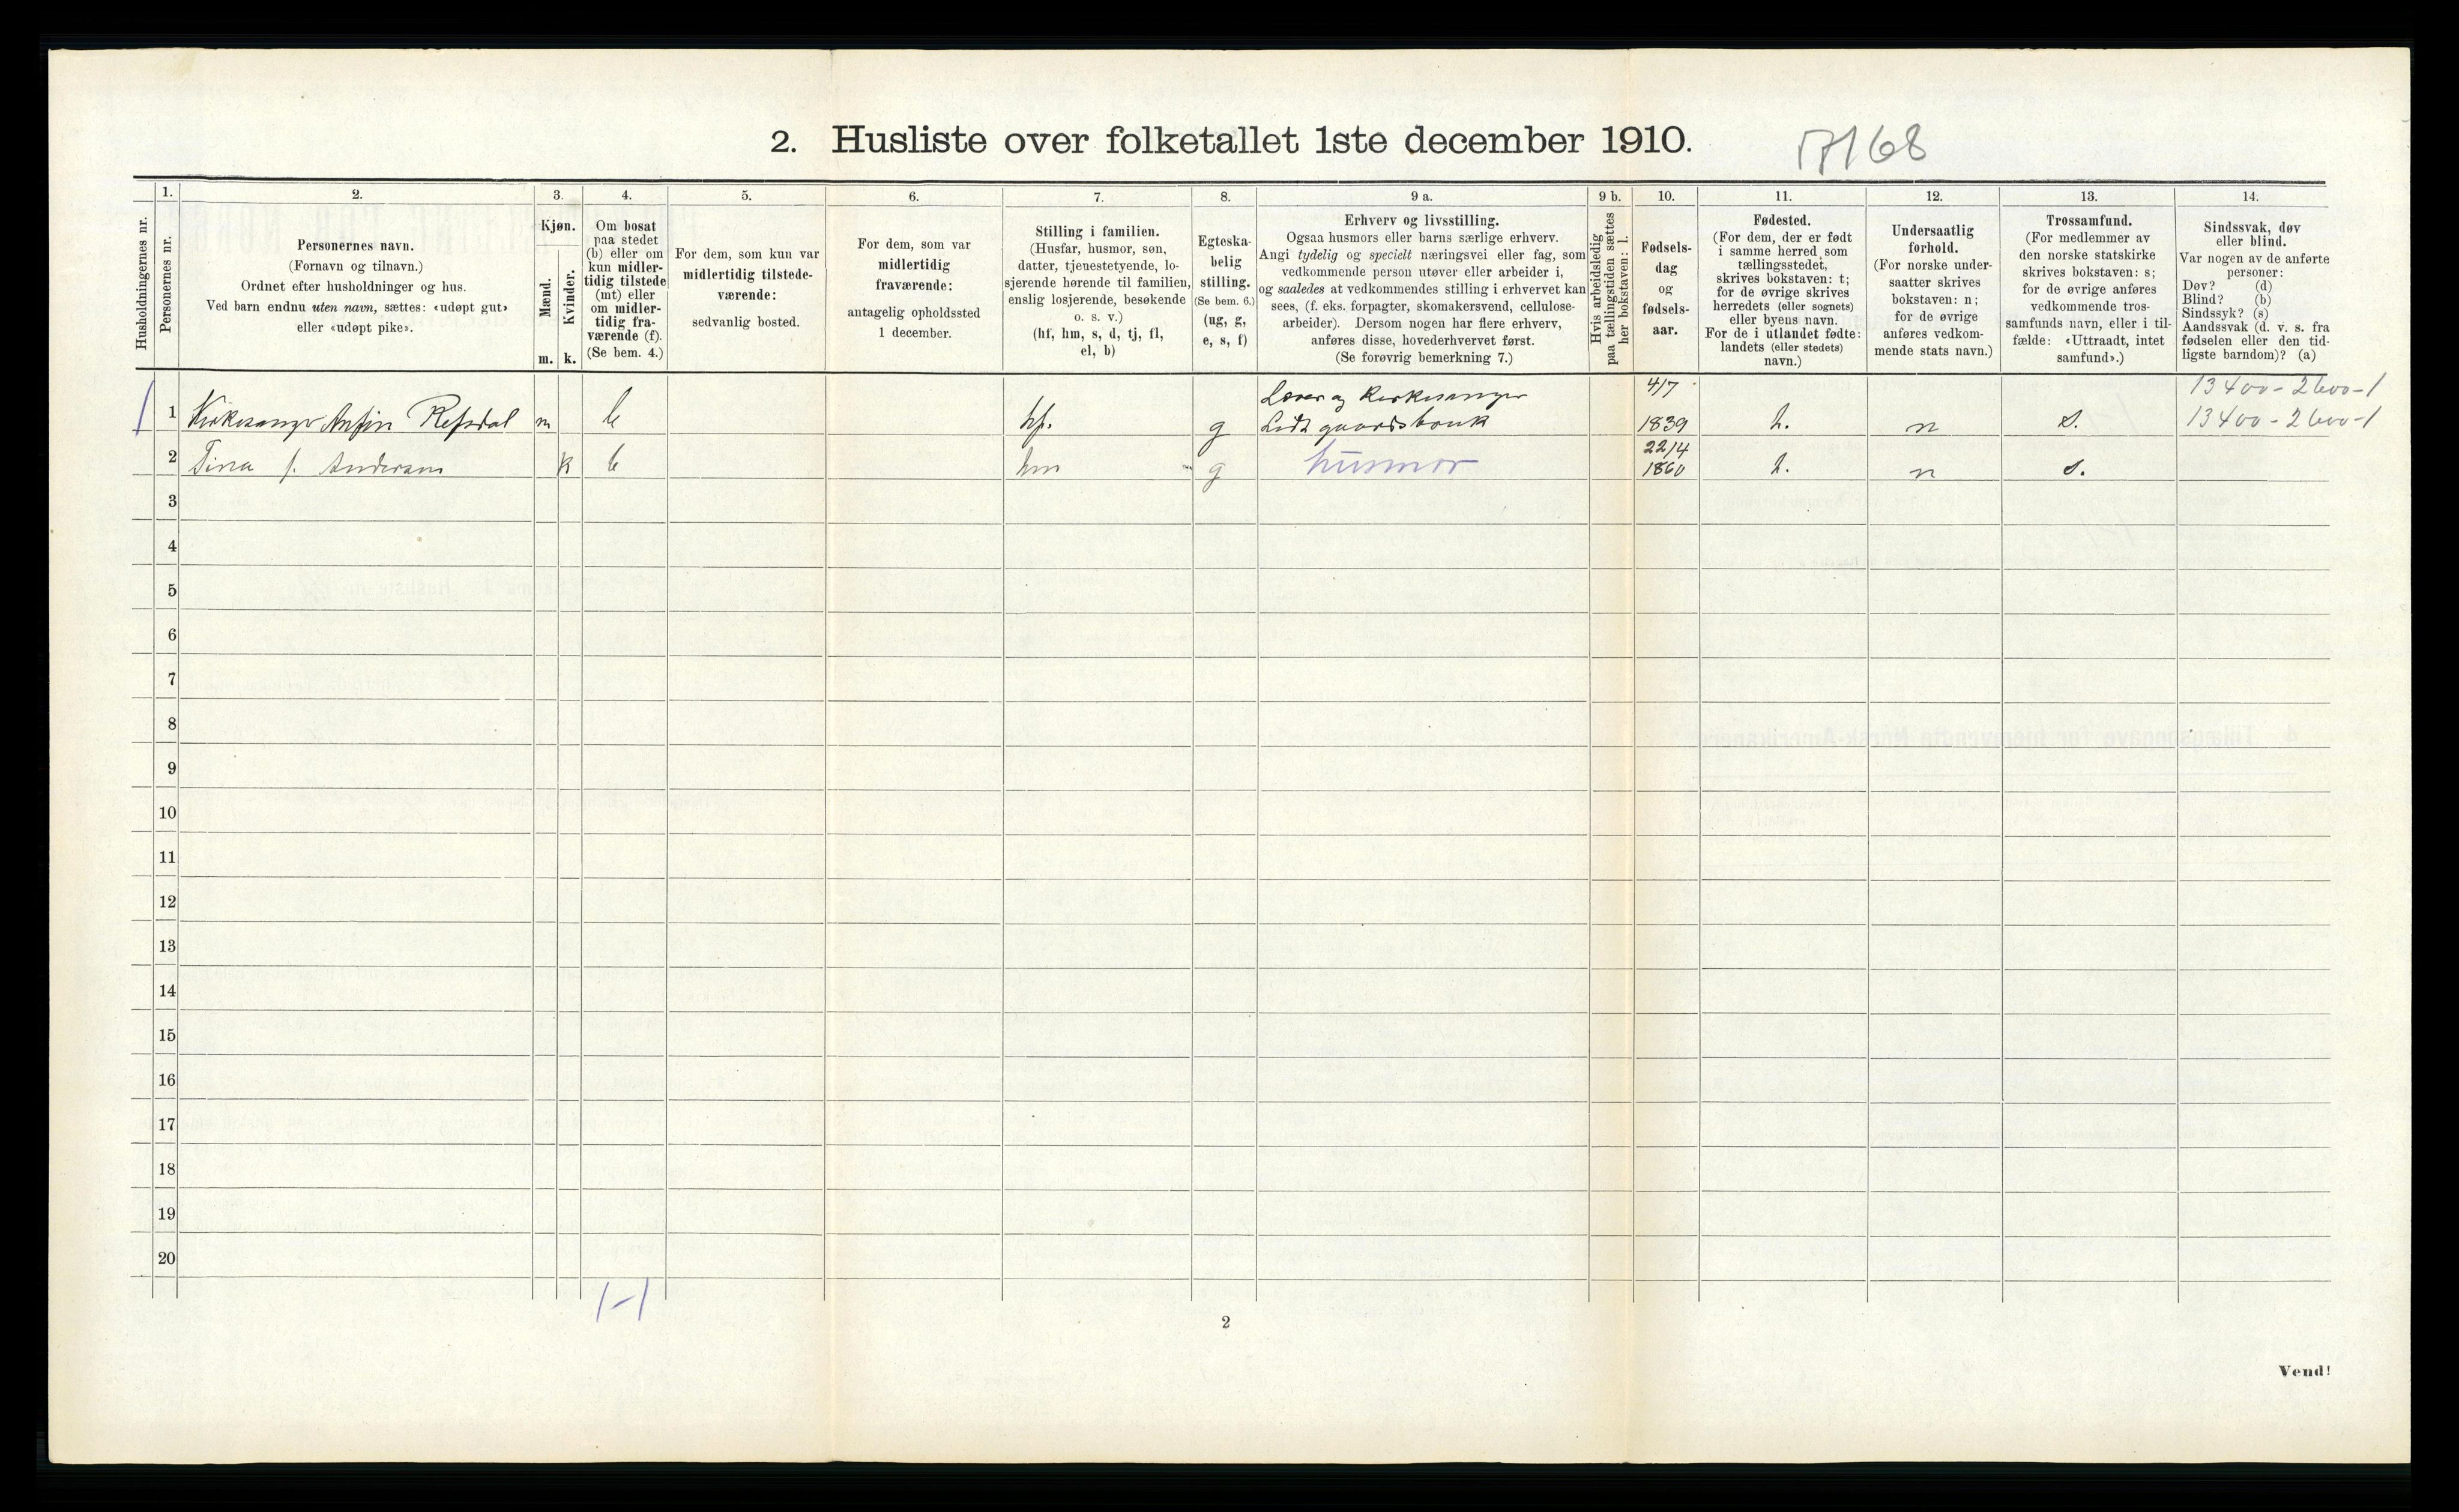 2. Husliste over folketallet 1ste december 1910.
1. 2. 3. 4. 5. 6. 7. 8. 9 a. 9 b. 10. 11. 12. 13. 14.
Husholdningernes nr.
Personernes nr.
Personernes navn.
(Fornavn og tilnavn.)
Ordnet efter husholdninger og hus.
Ved barn endnu uten navn, sættes: «udøpt gut»
eller «udøpt pike».
Kjøn.
Mænd.
Kvinder.
m. k.
Om bosat
paa stedet
(b) eller om
kun midler-
tidig tilstede
(mt) eller
om midler-
tidig fra-
værende (f).
(Se bem. 4.)
For dem, som kun var
midlertidig tilstede-
værende:
sedvanlig bosted.
For dem, som var
midlertidig
fraværende:
antagelig opholdssted
1 december.
Stilling i familien.
(Husfar, husmor, søn,
datter, tjenestetyende, lo-
sjerende hørende til familien,
enslig losjerende, besøkende
o. s. v.)
(hf, hm, s, d, tj, fl,
el, b)
Egteska-
belig
stilling.
(Se bem. 6.)
(ug, g,
e, s, f)
Erhverv og livsstilling.
Ogsaa husmors eller barns særlige erhverv.
Angi tydelig og specielt næringsvei eller fag, som
vedkommende person utøver eller arbeider i,
og saaledes at vedkommendes stilling i erhvervet kan
sees, (f. eks. forpagter, skomakersvend, cellulose-
arbeider). Dersom nogen har flere erhverv,
anføres disse, hovederhvervet først.
(Se forøvrig bemerkning 7.)
Hvis arbeidsledig
paa tællingstiden sættes
her bokstaven: l.
Fødsels-
dag
og
fødsels-
aar.
Fødested.
(For dem, der er født
i samme herred som
tællingsstedet,
skrives bokstaven: t;
for de øvrige skrives
herredets (eller sognets)
eller byens navn.
For de i utlandet fødte:
landets (eller stedets)
navn.)
Undersaatlig
forhold.
(For norske under-
saatter skrives
bokstaven: n;
for de øvrige
anføres vedkom-
mende stats navn.)
Trossamfund.
(For medlemmer av
den norske statskirke
skrives bokstaven: s;
for de øvrige anføres
vedkommende tros-
samfunds navn, eller i til-
fælde: «Uttraadt, intet
samfund».)
Sindssvak, døv
eller blind.
Var nogen av de anførte
personer:
Døv? (d)
Blind? (b)
Sindssyk? (s)
Aandssvak (d. v. s. fra
fødselen eller den tid-
ligste barndom)? (a)
Lærer og Kirkesanger 4/7 13400-2600-1
1 Kirkesanger Anfin Refsdal m b hf. g Lidt gaardsbruk 1839 n s. 13400-2600-1
22/4
2 Tina k b hm g husmor 1860 n s.
3
4
5
6
7
8
9
10
11
12
13
14
15
16
17
18
19
20
1-1
2
Vend!